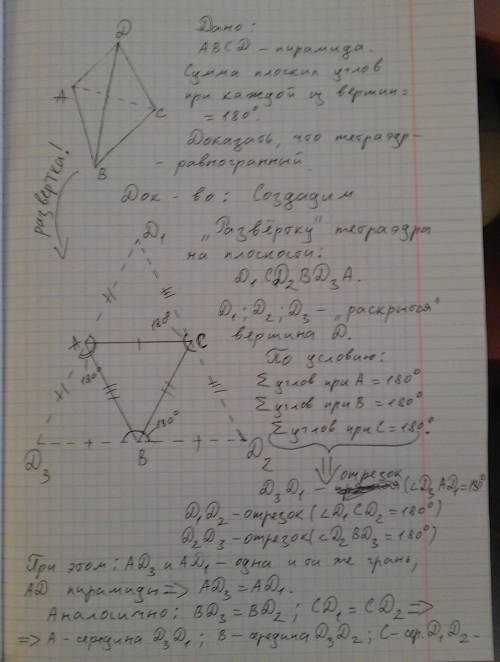 D
A
C
B
Дано:
ABCD – пирамида.
Сумма плоских углов
при каждой из вершин =
= 180°.
Доказать, что тетраэдр –
– равногранный.
развертка!
Док-во: Создадим
"Развёртку" тетраэдра
на плоскости:
D₁CD₂BD₃A.
D₁; D₂; D₃ – "раскрытая"
вершина D.
По условию:
Σ углов при A = 180°
Σ углов при B = 180°
Σ углов при C = 180°.
D₁
A
C
180°
180°
180°
D₃
B
D₂
D₃D₁ – отрезок (∠D₃AD₁=180°
D₁D₂ – отрезок (∠D₁CD₂ = 180°)
D₂D₃ – отрезок (∠D₂BD₃ = 180°)
При этом: AD₃ и AD₁ – одна и та же грань,
AD пирамиды => AD₃ = AD₁.
Аналогично: BD₃ = BD₂; CD₁ = CD₂ =>
=> A – середина D₃D₁; B – середина D₃D₂; C – сер. D₁D₂ –